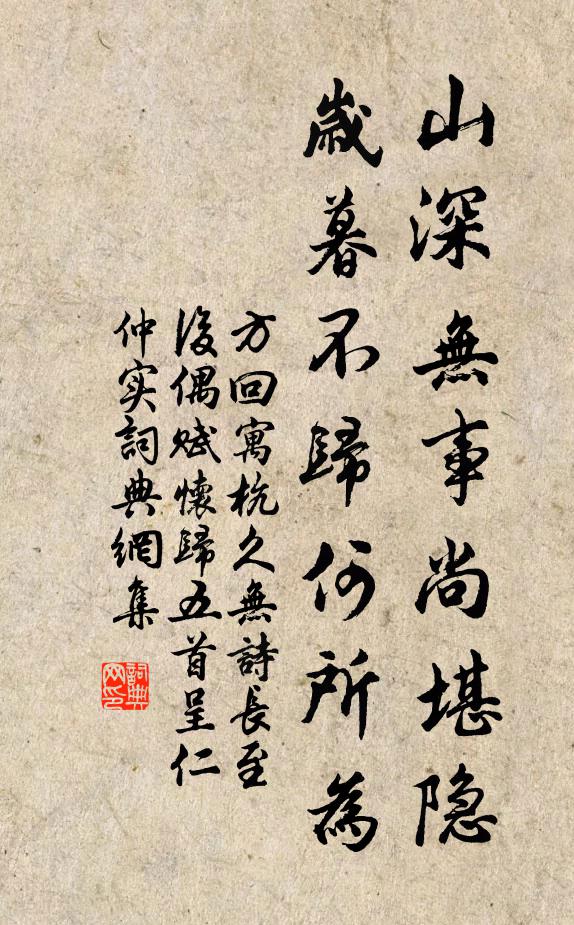 山深無事尚堪隐
歲暮不歸何所為
方回寓杭久無詩長至
後偶赋懷歸五首呈仁
仲实詞典網集
詞典
网印